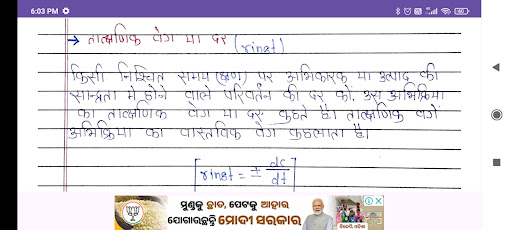 6:03 PM
→ तात्क्षणिक वेग या दर (rinst)
किसी निश्चित समय (क्षण) पर अभिकारक या उत्पाद की
सान्द्रता में होने वाले परिवर्तन की दर को, उस अभिक्रिया
का तात्क्षणिक वेग या दर कहते है। तात्क्षणिक वेग
अभिक्रिया का वास्तविक वेग कहलाता है।
rinst = ± dc/dt
ମୁଣ୍ଡକୁ ଛାତ, ପେଟକୁ ଆହାର
ଯୋଗାଉଛନ୍ତି ମୋଦୀ ସରକାର